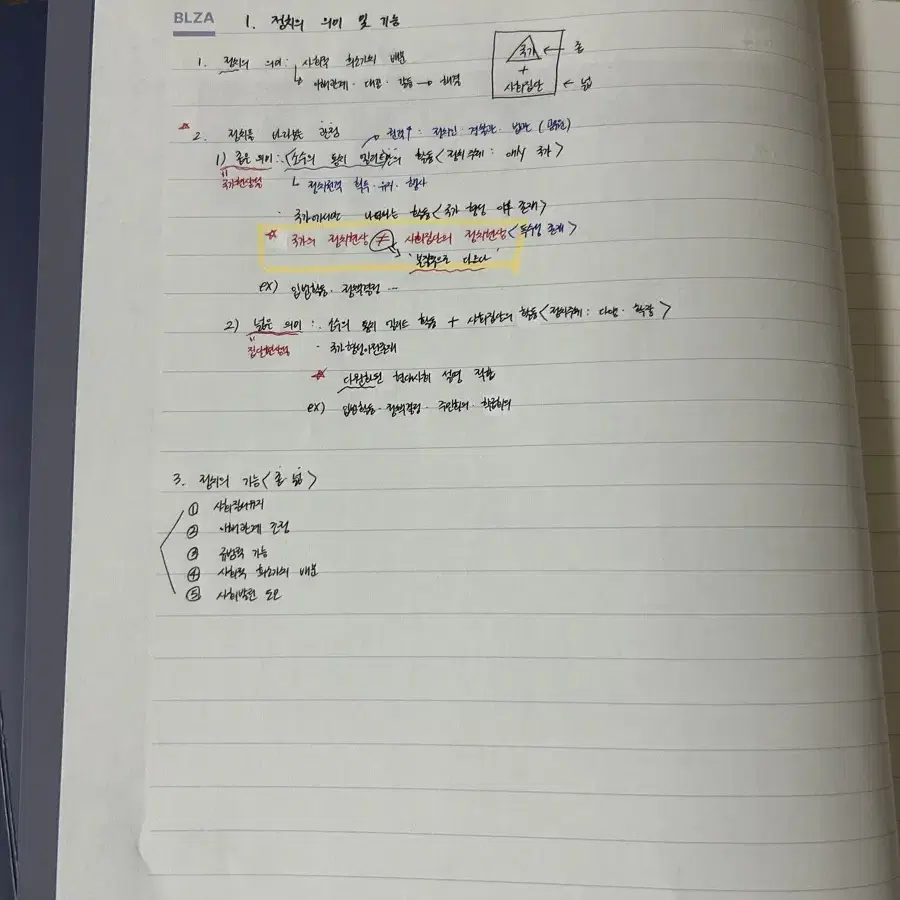 BLZA
1. 정치의 의미 및 기능
1. 정치의 의미: 사회적 희소가치 배분
↳ 이해관계·대립·갈등 → 해결
국가 ← 좁
+
사회집단 ← 넓
☆ 2. 정치를 바라보는 관점
권력↑: 정치인·법관 (공무원)
1) 좁은 의미: 소수의 통치 엘리트만의 활동 <정치주체: 국가>
" 국가현상설
↳ 정치권력 획득·유지·행사
· 국가에서만 나타나는 활동 <국가 형성 이후 존재>
☆ 국가의 정치현상 ≠ 사회집단의 정치현상 <특수성 존재>
'본질적으로 다르다'
ex) 입법활동·정책결정 ...
2) 넓은 의미: 소수의 통치 엘리트 활동 + 사회집단의 활동 <정치주체: 다양·확장>
" 집단현상설
· 국가형성이전존재
☆ 다원화된 현대사회 설명 적합
ex) 입법활동·정책결정·주민회의·학급회의
3. 정치의 기능 <좁·넓>
① 사회질서유지
② 이해관계 조정
③ 규범적 기능
④ 사회적 희소가치 배분
⑤ 사회발전 도모